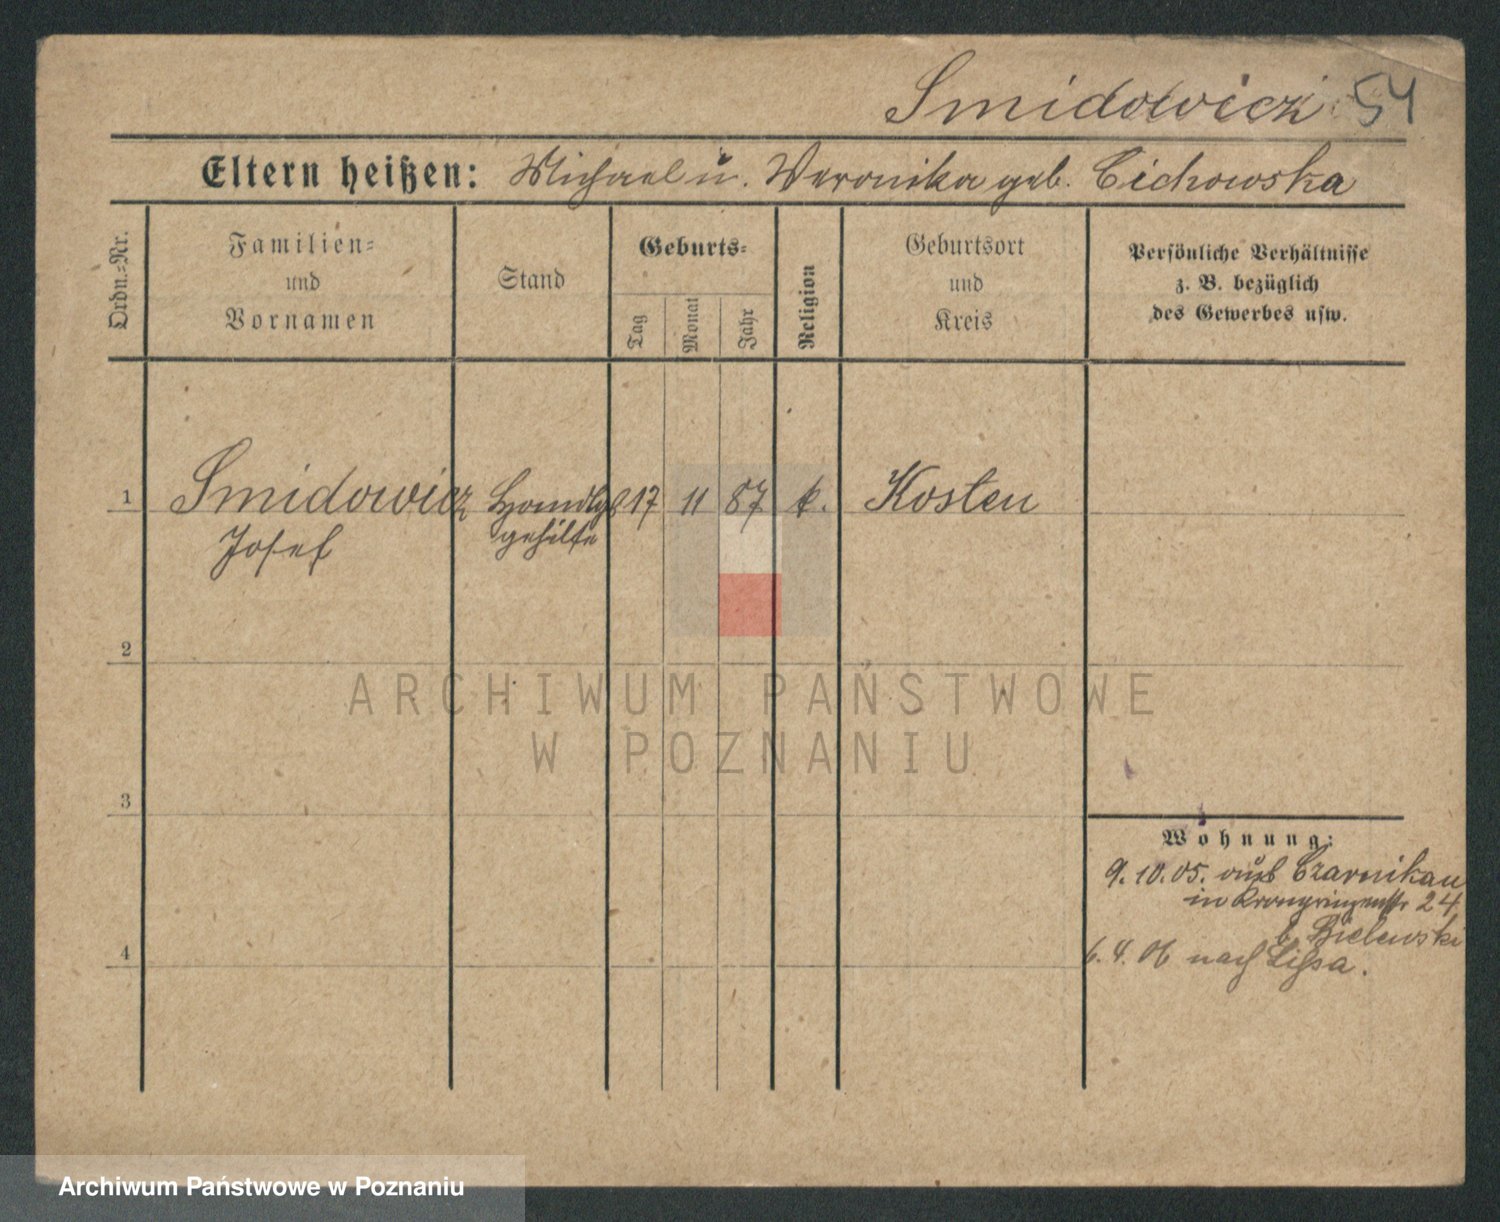 Smidowicz 54
Eltern heißen: Michael u. Veronika geb. Cichowska
Ordn.-Nr.
Familien- und Vornamen
Stand
Geburts-
Tag
Monat
Jahr
Religion
Geburtsort und Kreis
Persönliche Verhältnisse
z. B. bezüglich
des Gewerbes usw.
1 Smidowicz Handlgs 17 11 87 k. Kosten
Josef gehilfe
2
ARCHIWUM PAŃSTWOWE
W POZNANIU
3
Wohnung:
9.10.05. aus Czarnikau
in Kronprinzenstr 24
b. Bielewski
4
6.4.06 nach Lissa.
Archiwum Państwowe w Poznaniu